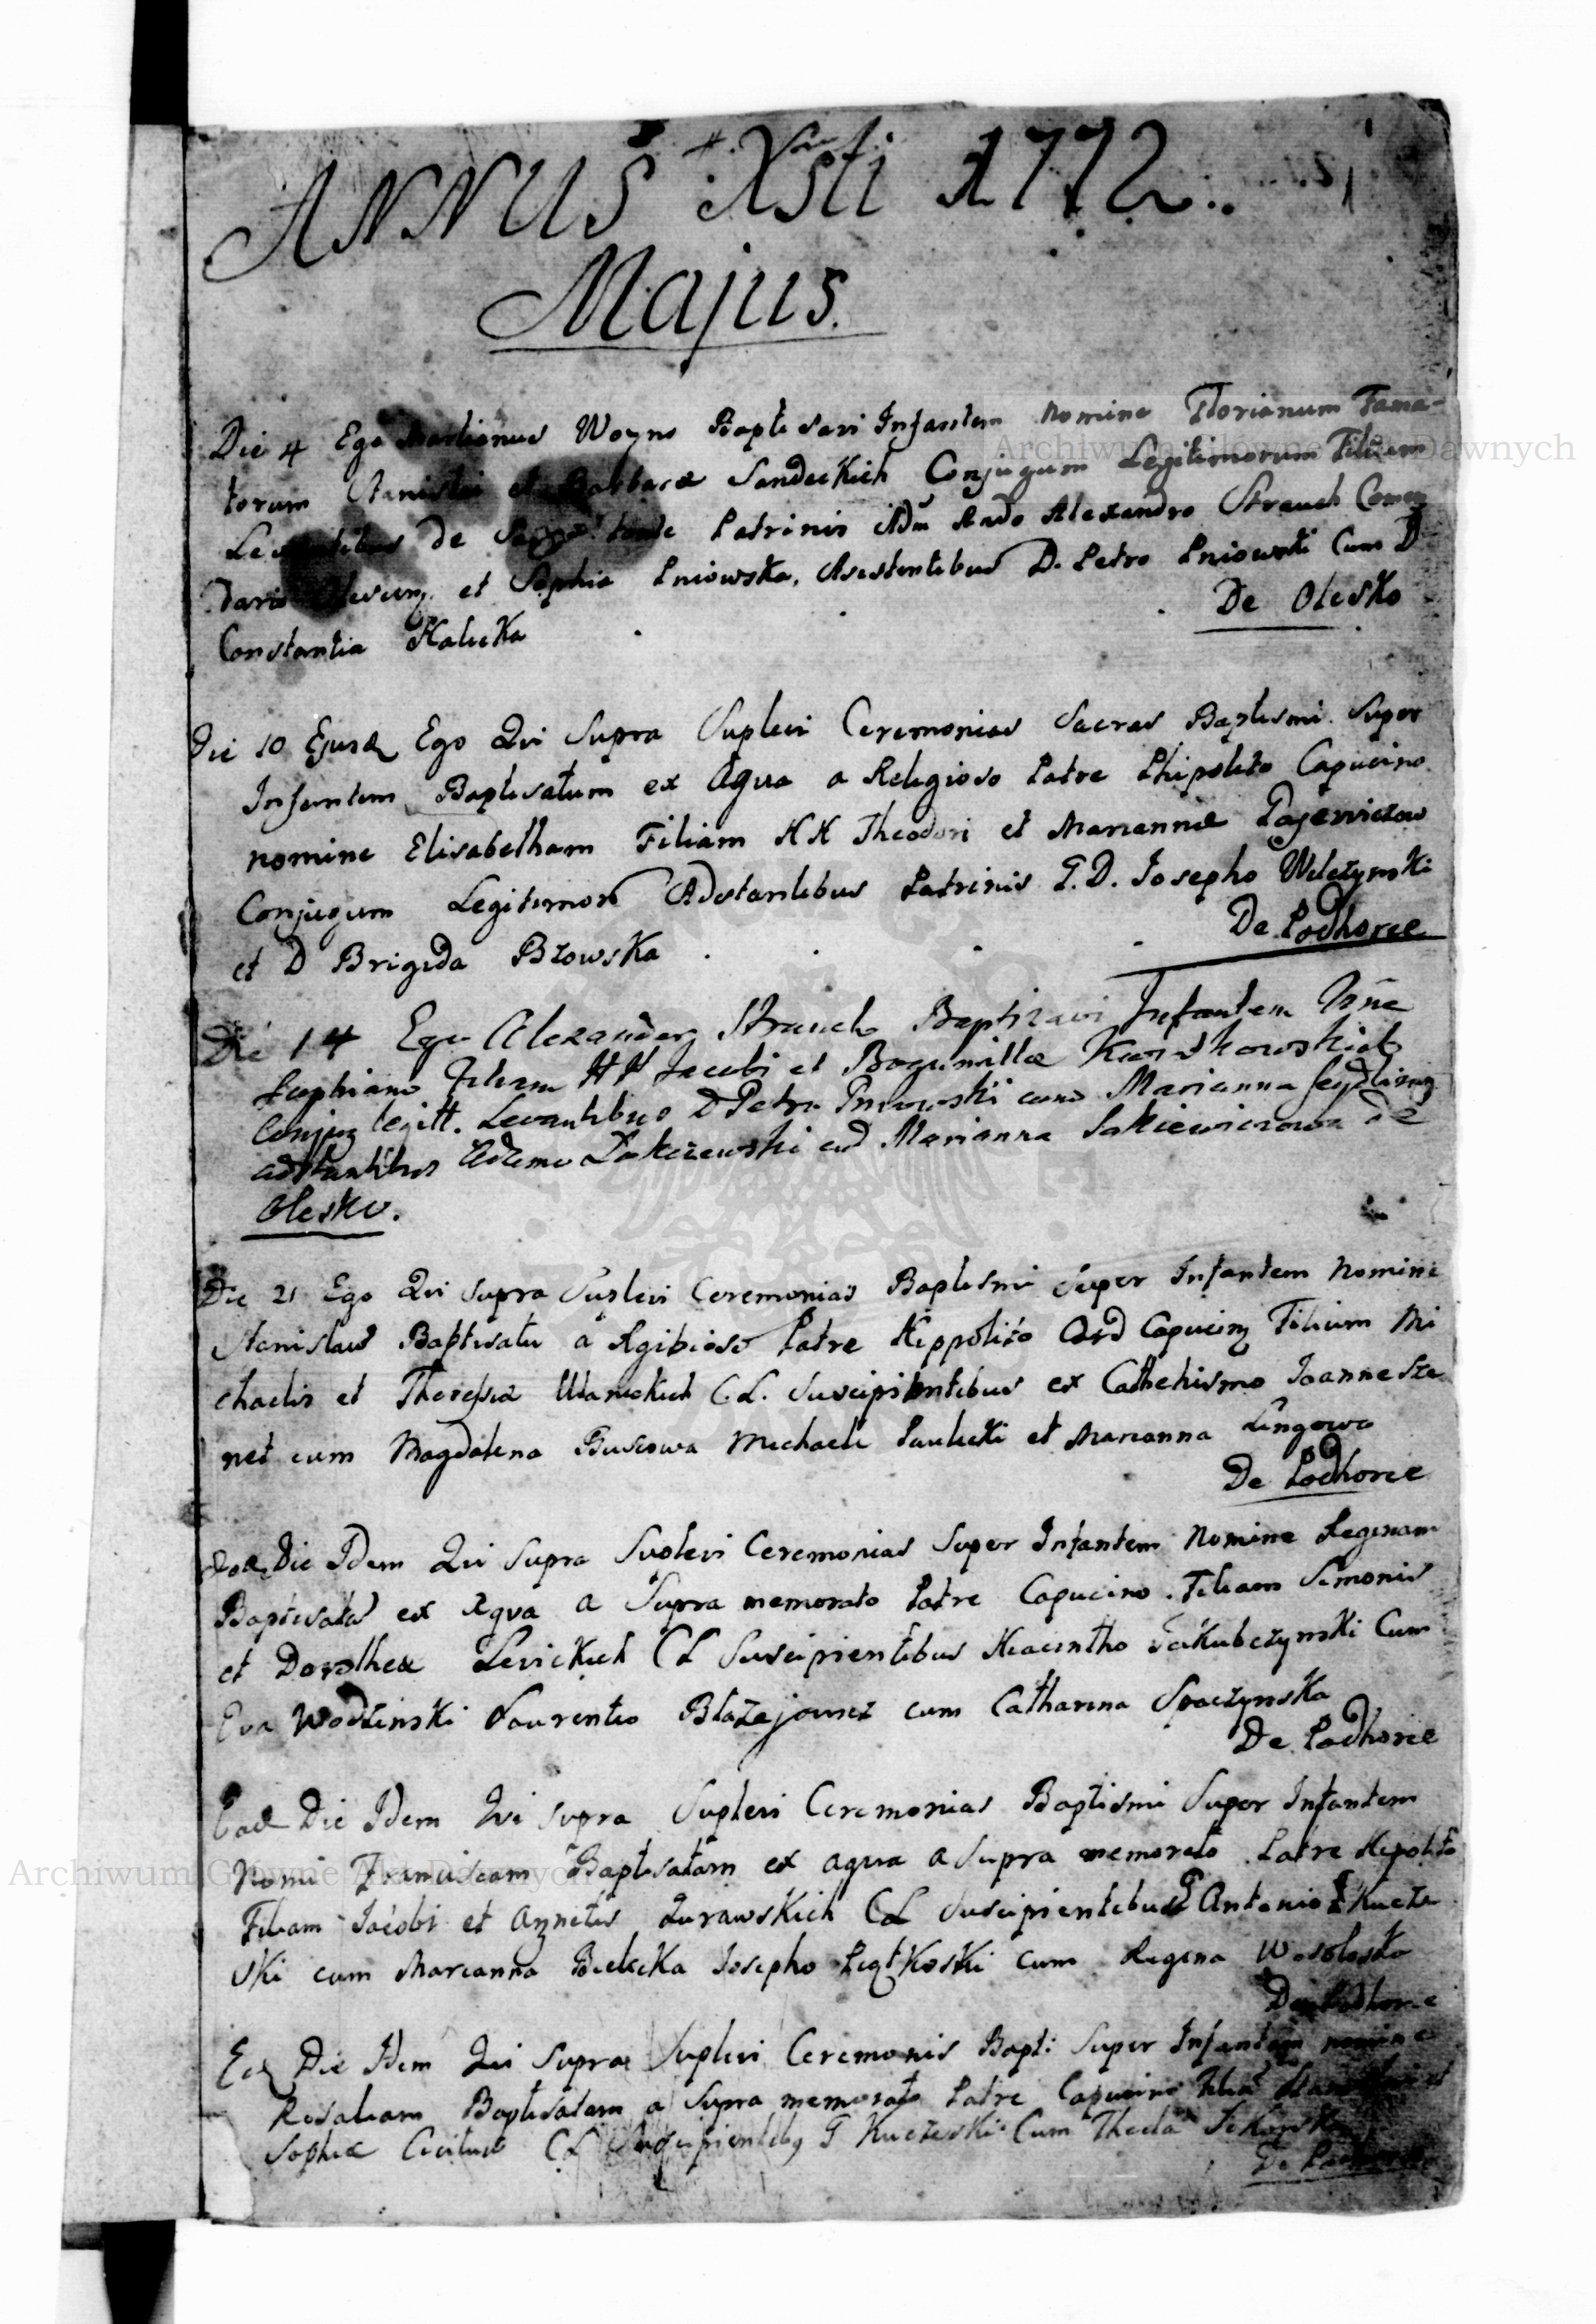 ANNUS Xsti 1772.
Majus.
Die 4 Ego Martianus Woyno Baptisavi Infantem nomine Florianum Fama-
torum Stanislai et Barbarae Sandeckich Conjugum Legitimorum Filium
Levantibus de Sacro fonte Patrinis Adm Rndo Alexandro Strauch Comen
dario Olescen. et Sophia Pniowska, Asistentibus D. Petro Pniowski Cum D
Constantia Halicka De Olesko
Die 10 Ejusd Ego Qvi Supra Suplevi Ceremonias Sacras Baptismi Super
Infantem Baptisatum ex Aqua a Religioso Patre Phipolito Capucino
nomine Elisabetham Filiam HH Theodori et Mariannae
Conjugum Legitimor Adstantibus Patrinis G. D. Josepho Wilczynski
et D Brigida Bzowska De Podhorce
Die 14 Ego Alexander Strauch Baptizavi Infantem Nne
Sophiam Filiam HH Jacobi et Bogumillae
Conjug legitt. Levantibus D Petro Pniowski cum Marianna
adstantibus Adamo Zakrzewski cu Marianna de
Olesko.
Die 21 Ego Qvi Supra Suplevi Ceremonias Baptismi Super Infantem Nomine
Stanislaus Baptisatu a Patre Hippolito Ord Capucin Filium Mi
chaelis et Theresiae C. L. Suscipientibus ex Cathehismo Joanne
cum Magdalena Michaele Pawlicki et Marianna
De Podhorce
Die Idem Qvi Supra Suplevi Ceremonias Super Infantem Nomine Reginam
Baptisata ex Aqva a Supra memorato Patre Capucino Filiam Simonis
et Dorothea Levickich CL Suscipientibus Hiacintho Jakubczynski Cum
Eva Wodzinski Laurentio Blazejowicz cum Catharina
De Podhorce
Ead Die Idem Qvi Supra Suplevi Ceremonias Baptismi Super Infantem
Nomi Franciscam Baptisatam ex aqua a Supra memorato Patre Hipolito
Filiam Jacobi et Agnetis Zurawskich CL Suscipientibus G Antonio
ski cum Marianna Bielicka Josepho cum Regina
De Podhorce
Ead Die Idem Qvi Supra Suplevi Ceremonis Bapti: Super Infantem nomine
Rosaliam Baptisatam a Supra memorato Patre Capucino
Sophiae CL Suscipientib G Cum Thecla
De Podhorce
Archiwum Główne Akt Dawnych
Archiwum Główne Akt Dawnych